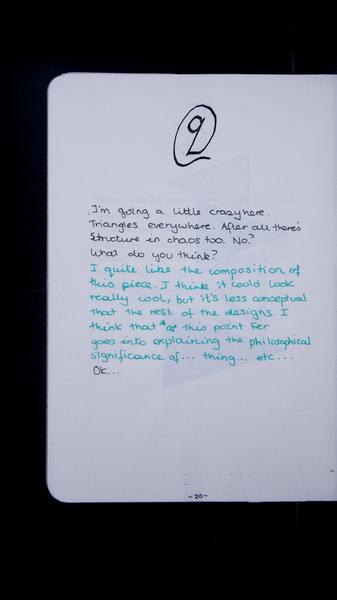 9
I'm going a little crazy here.
Triangles everywhere. After all there's
structure in chaos too. No?
What do you think?
I quite like the composition of
this piece. I think it could look
really cool, but it's less conceptual
that the rest of the designs. I
think that *at this point Fer
goes into explaining the philosophical
significance of... thing... etc...
Ok...
-20-